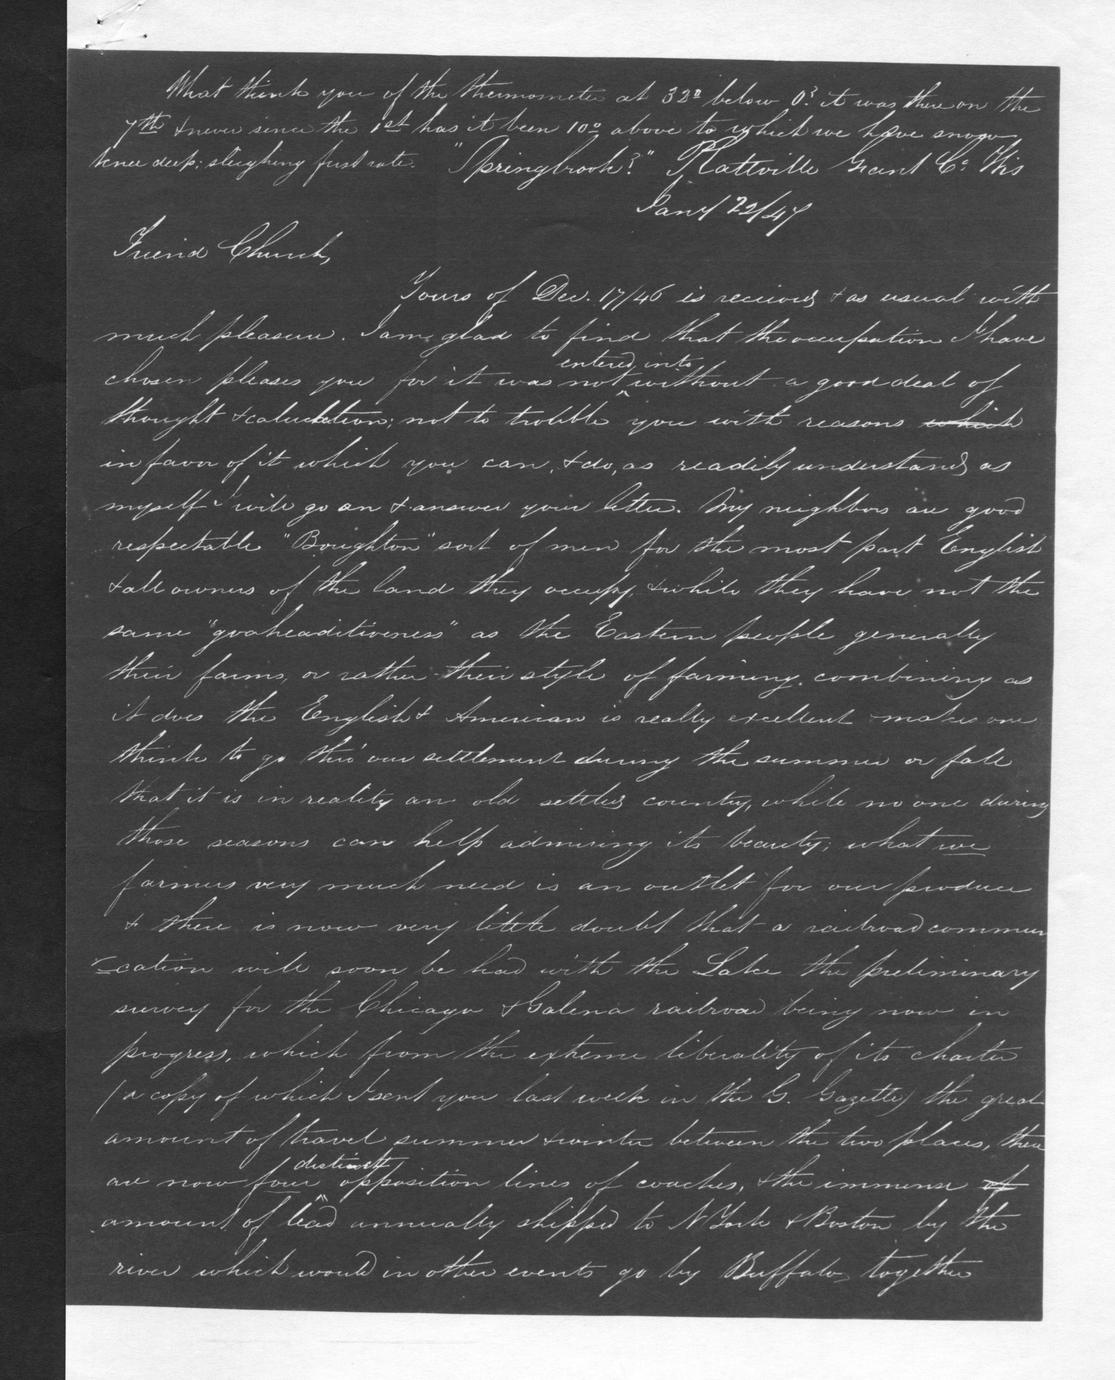 What think you of the thermometer at 32° below 0? it was there on the
7th & never since the 1st has it been 10° above to which we have snow
knee deep; sleighing first rate. "Springbrook?" Plattville Grant Co. Wis
Jany 22/47
Friend Church,
Yours of Dec. 17/46 is received & as usual with
much pleasure. I am glad to find that the occupation I have
entered into
chosen pleases you for it was not ^ without a good deal of
thought & caluclation; not to trouble you with reasons which
in favor of it which you can, & do, as readily understand, as
myself I will go on & answer your letter. My neighbors are good
respectable "Boughton" sort of men for the most part English
& all owners of the land they occupy, & while they have not the
same "goaheaditiveness" as the Eastern people generally
their farms, or rather their style of farming, combining as
it does the English & American is really excellent & makes one
think to go thro' our settlement during the summer or fall
that it is in reality an old settled country, while no one during
those seasons can help admiring its beauty; what we
farmers very much need is an outlet for our produce
& there is now very little doubt that a railroad commun
-ication will soon be had with the Lake the preliminary
survey for the Chicago & Galena railroad being now in
progress, which from the extreme liberality of its charter
(a copy of which I sent you last week in the G. Gazette) the great
amount of travel summer & winter between the two places, there
distinct
are now four ^ opposition lines of coaches, & the immense of
amount of lead annually shipped to N York & Boston by the
river which would in other events go by Buffalo, together